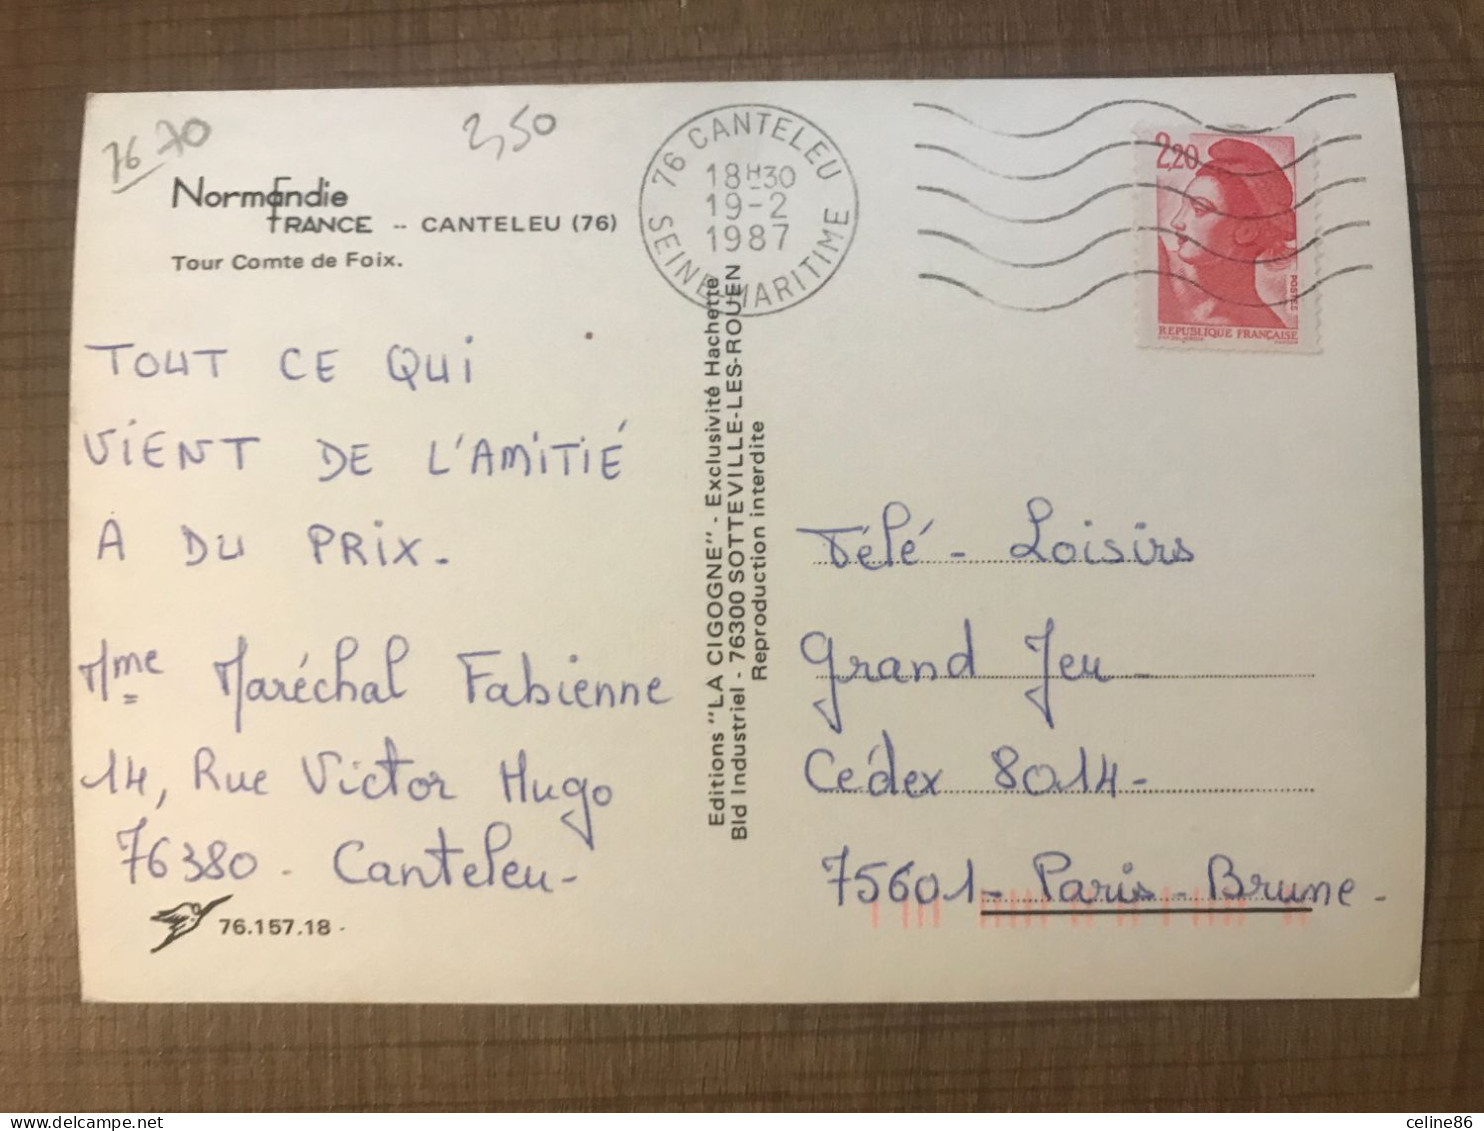 76 70
2,50
Normandie
FRANCE -- CANTELEU (76)
Tour Comte de Foix.
76 CANTELEU
18H30
19-2
1987
SEINE MARITIME
2,20
POSTES
REPUBLIQUE FRANÇAISE
TOUT CE QUI
VIENT DE L'AMITIÉ
A DU PRIX.
Mme Maréchal Fabienne
14, Rue Victor Hugo
76380 - Canteleu -
76.157.18 -
Editions "LA CIGOGNE" - Exclusivité Hachette
Bld Industriel - 76300 SOTTEVILLE-LES-ROUEN
Reproduction interdite
Télé - Loisirs
Grand Jeu
Cédex 8014 -
75601 - Paris - Brune -
celine86